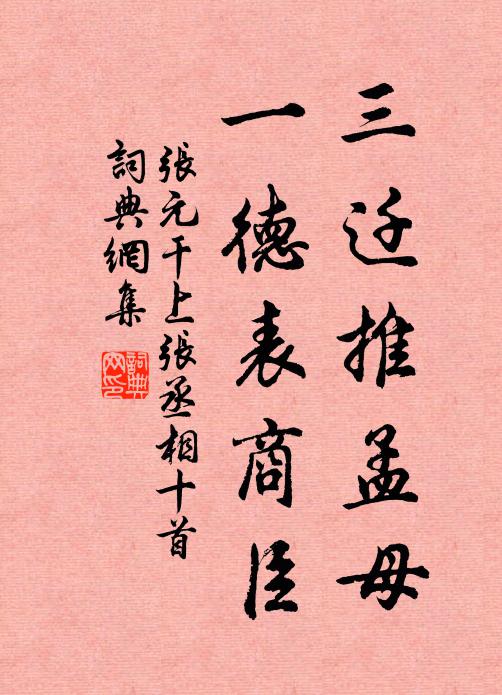 三迁推孟母
一德表商臣
張元干上張丞相十首
詞典網集
詞典
网印